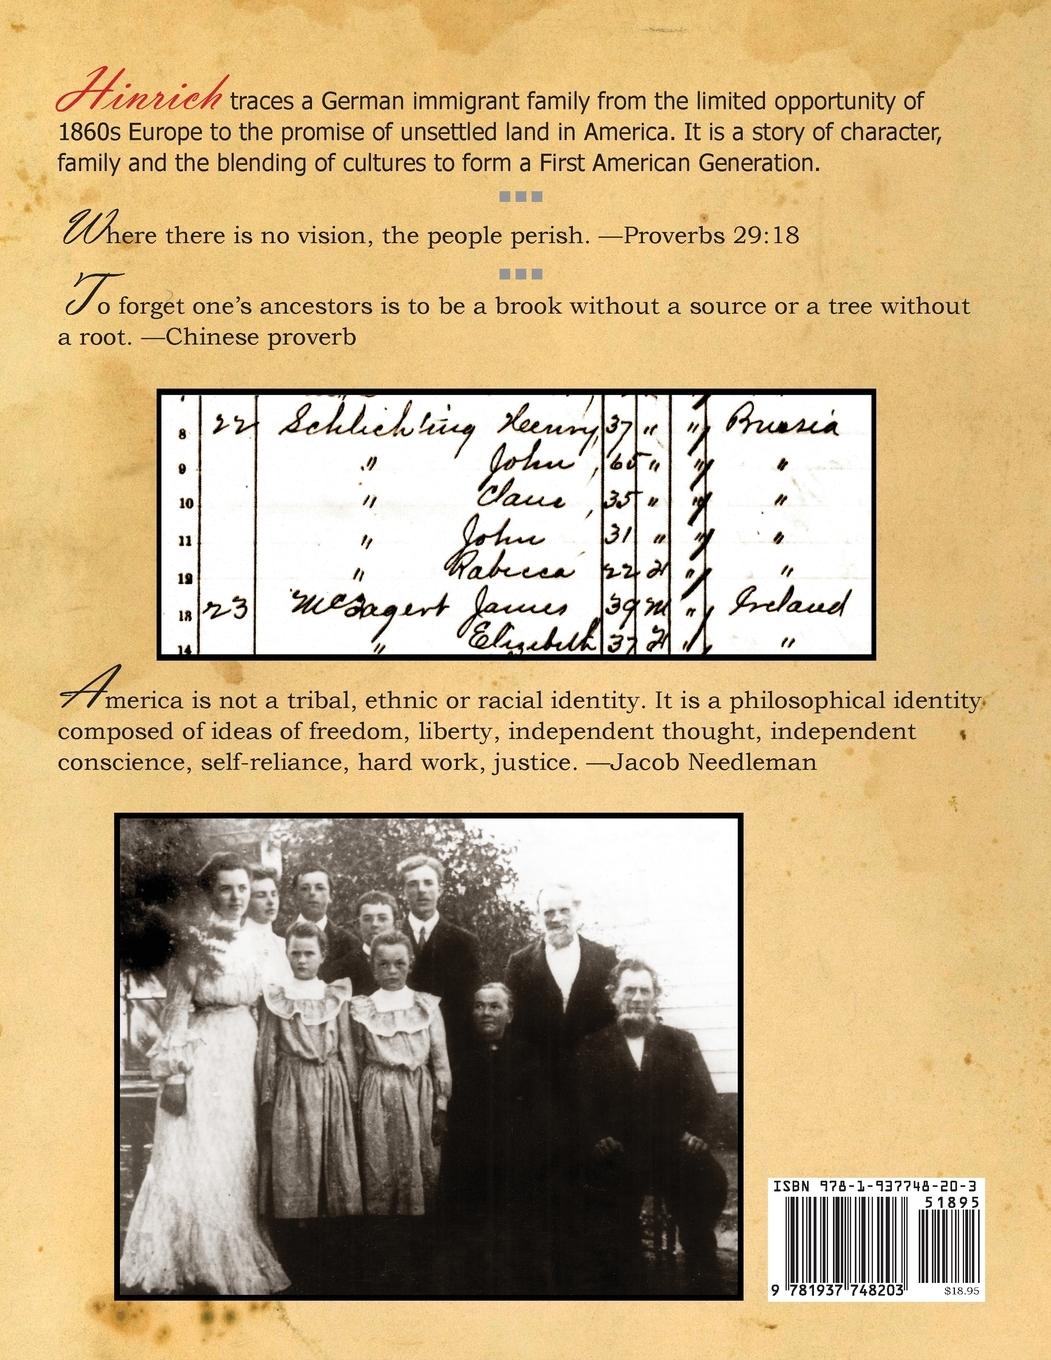 Hinrich traces a German immigrant family from the limited opportunity of
1860s Europe to the promise of unsettled land in America. It is a story of character,
family and the blending of cultures to form a First American Generation.
Where there is no vision, the people perish. —Proverbs 29:18
To forget one's ancestors is to be a brook without a source or a tree without
a root. —Chinese proverb
8 22 Schlichting Henry, 37 " " Prussia
9 " John, 65 " " "
10 " Claus, 35 " " "
11 " John 31 " " "
12 " Rabecca 22 " "
13 23 James 39 M " Ireland
14 " Elizabeth 37 " "
America is not a tribal, ethnic or racial identity. It is a philosophical identity
composed of ideas of freedom, liberty, independent thought, independent
conscience, self-reliance, hard work, justice. —Jacob Needleman
ISBN 978-1-937748-20-3
51895
9 781937 748203
$18.95